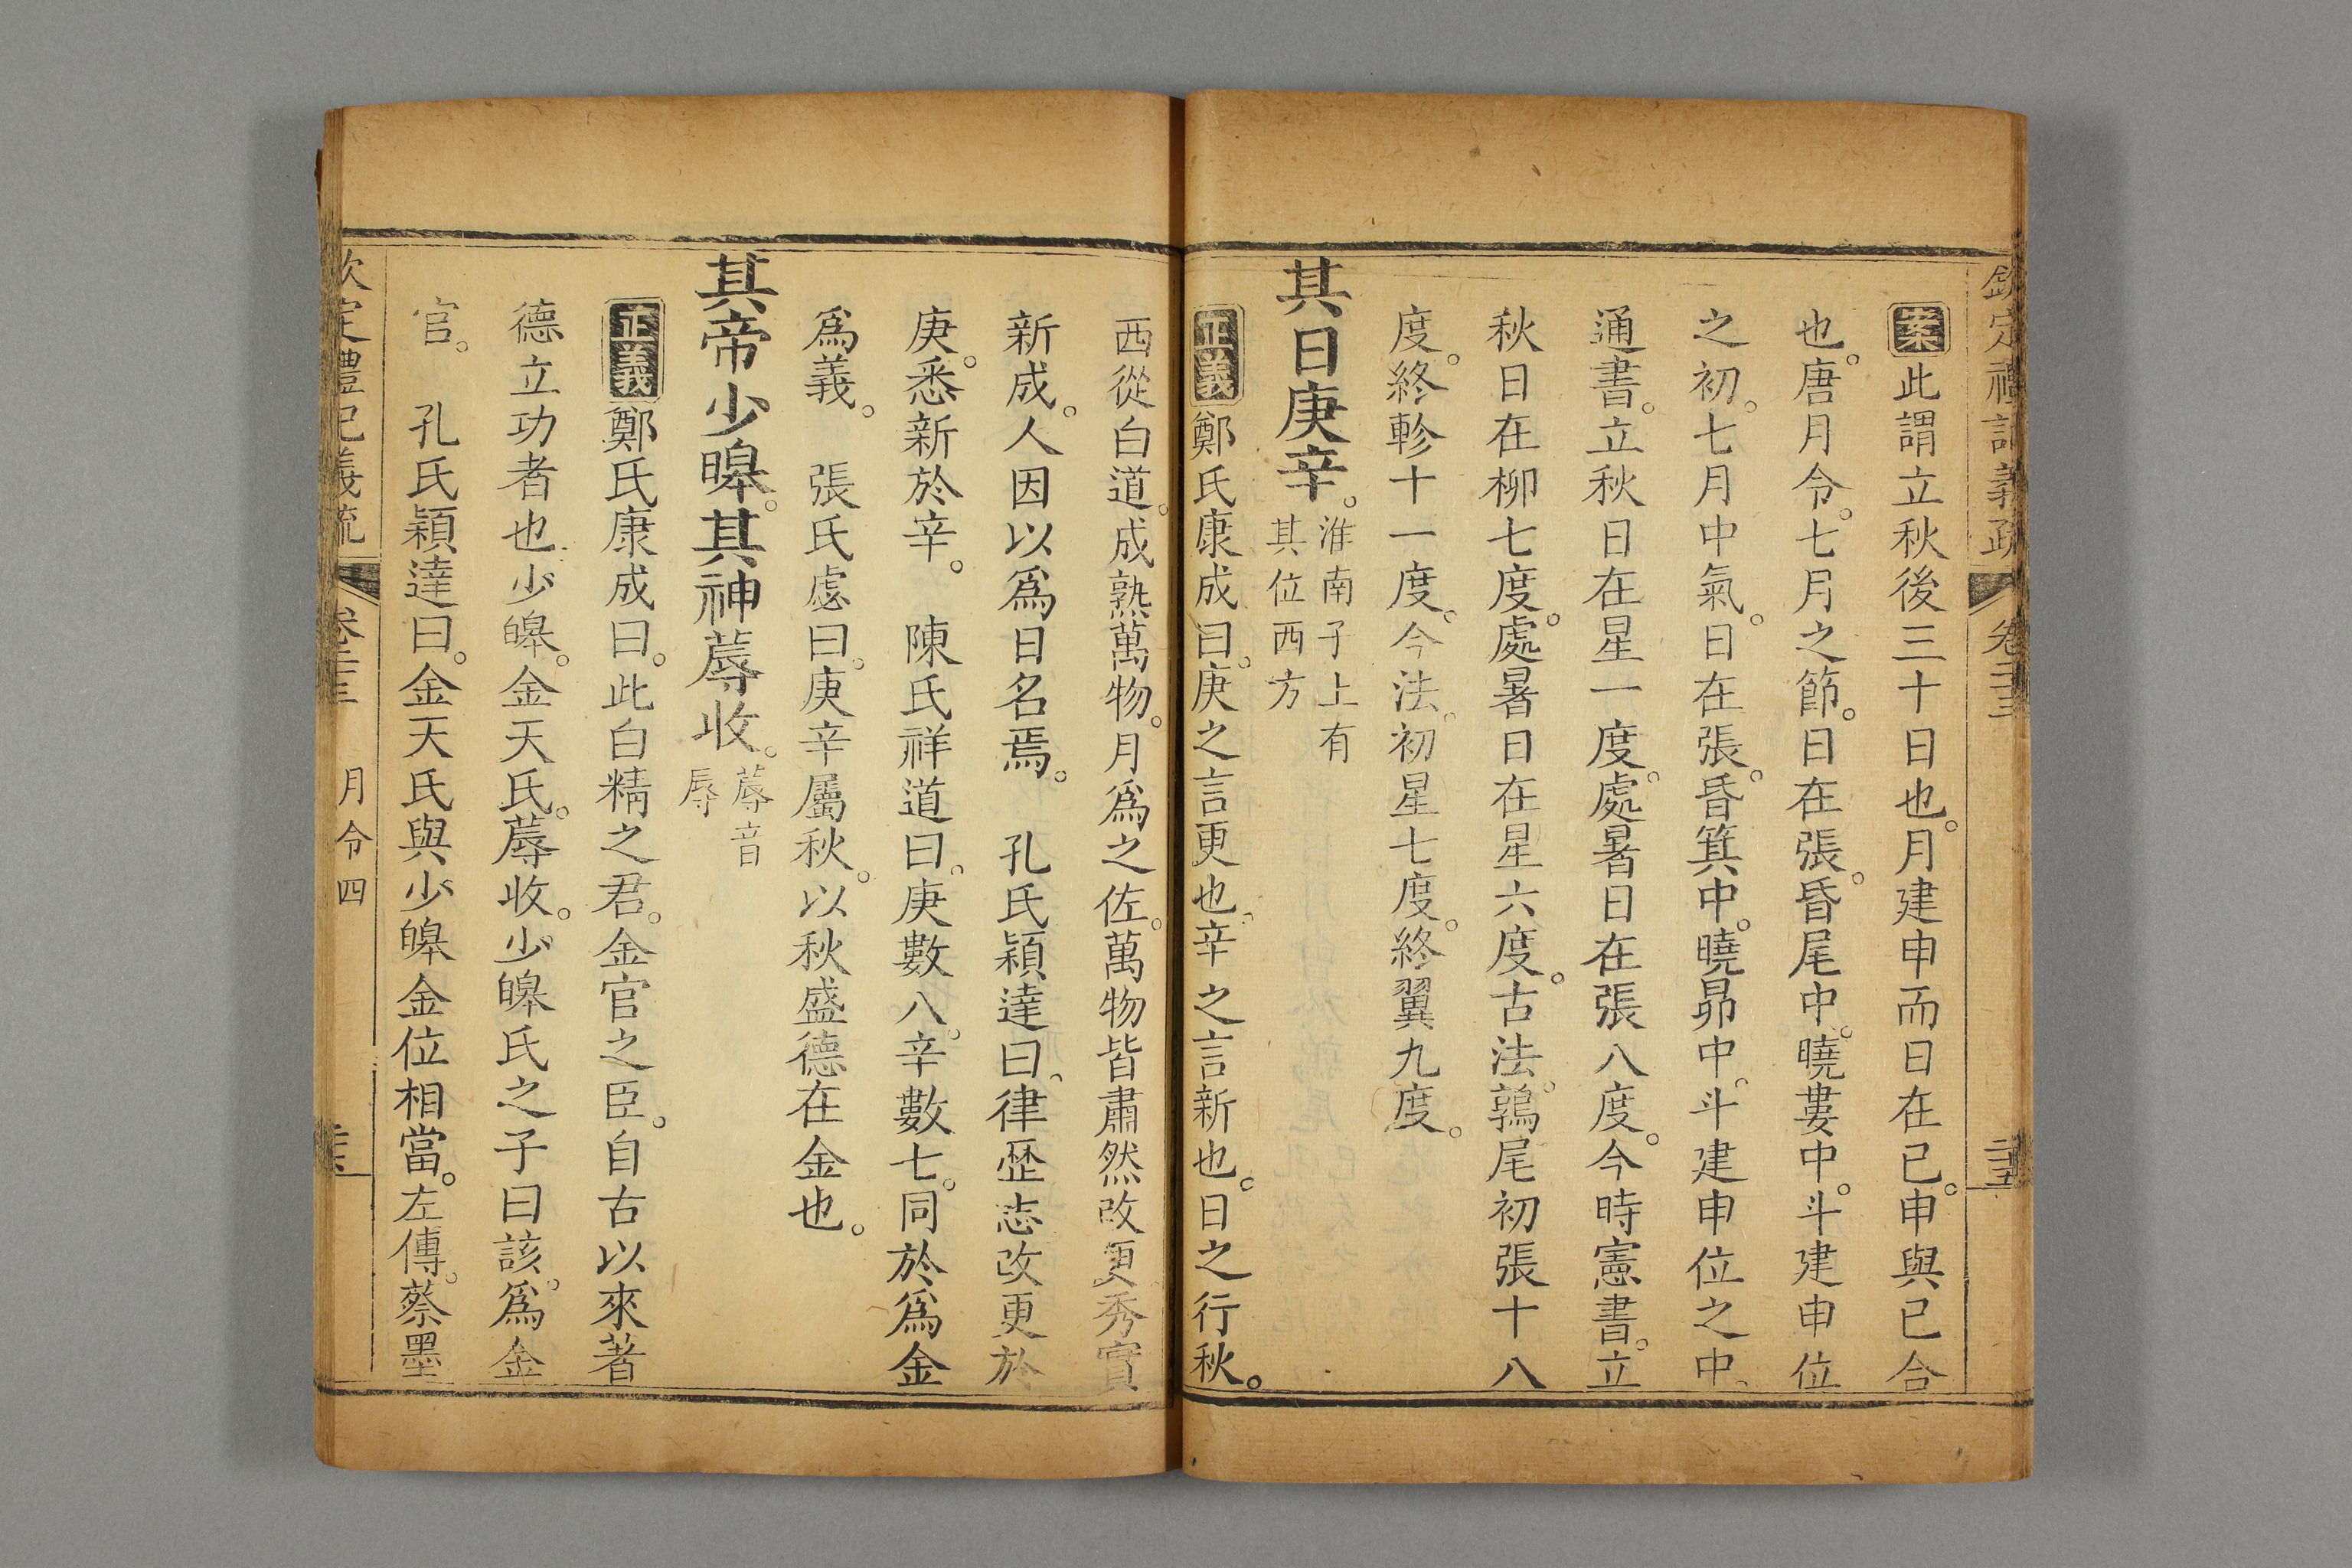 欽定禮記義疏 卷二十三
案此謂立秋後三十日也。月建申而日在巳。申與巳合
也。唐月令。七月之節。日在張。昏尾中。曉婁中。斗建申位
之初。七月中氣。日在張。昏箕中。曉昴中。斗建申位之中。
通書。立秋日在星一度。處暑日在張八度。今時憲書。立
秋日在柳七度。處暑日在星六度。古法。鶉尾初張十八
度。終軫十一度。今法。初星七度。終翼九度。
其日庚辛。淮南子上有
其位西方
正義鄭氏康成曰。庚之言更也。辛之言新也。日之行秋。
西從白道。成熟萬物。月為之佐。萬物皆肅然改更秀實
新成。人因以為日名焉。 孔氏穎達曰。律歷志改更於
庚。悉新於辛。 陳氏祥道曰。庚數八。辛數七。同於為金
為義。 張氏虙曰。庚辛屬秋。以秋盛德在金也。
其帝少皞。其神蓐收。蓐音
辱
正義鄭氏康成曰。此白精之君。金官之臣。自古以來著
德立功者也。少皞。金天氏。蓐收。少皞氏之子曰該。為金
官。 孔氏穎達曰。金天氏與少皞金位相當。左傳。蔡墨
欽定禮記義疏 卷二十三 月令四